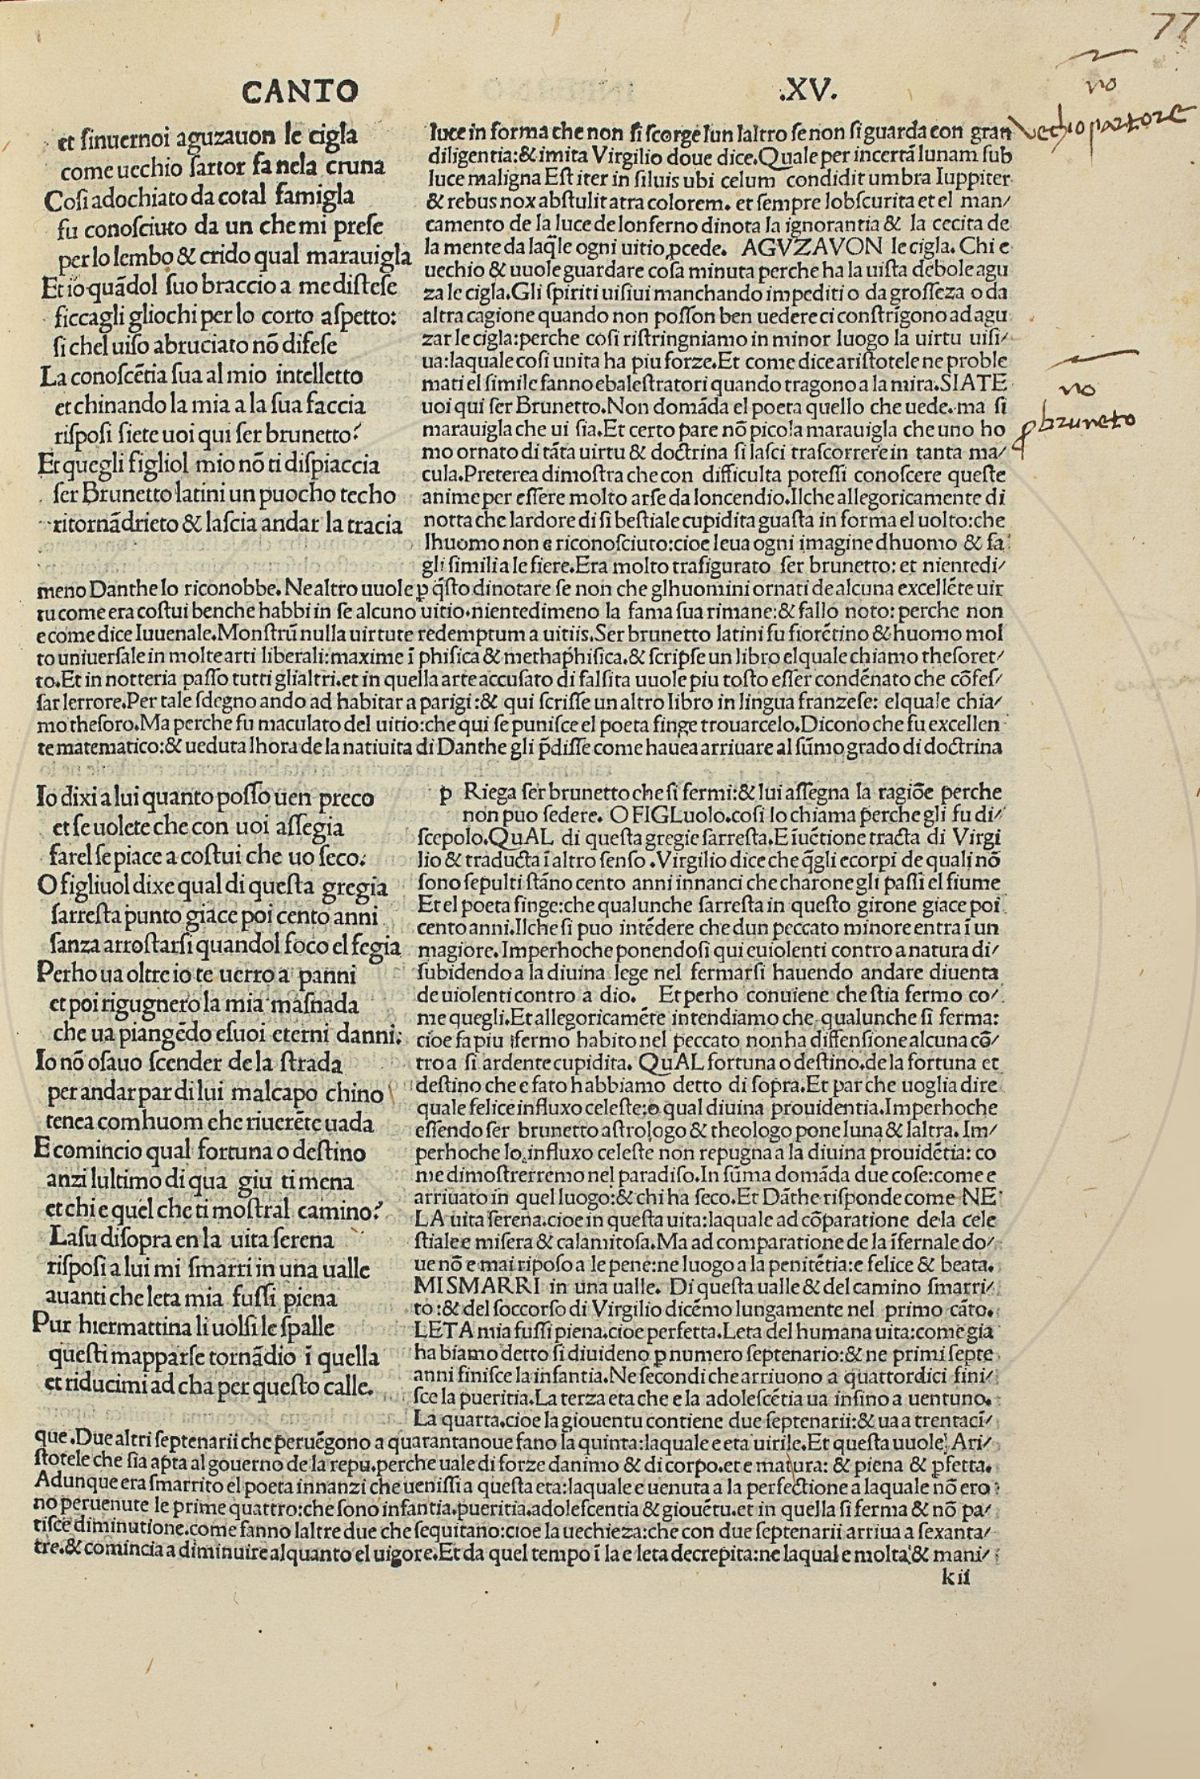 77
CANTO .XV.
et sinuernoi aguzauon le cigla
come uechio sartor fa nela cruna
Cosi adochiato da cotal famigla
fu conosciuto da un che mi prese
per lo lembo & crido qual marauigla
Et io quãdol suo braccio a me distese
ficcagli gliochi per lo corto aspetto:
si chel uiso abruciato nõ difese
La conoscẽtia sua al mio intelletto
et chinando la mia a la sua faccia
risposi siete uoi qui ser brunetto?
Et quegli figliol mio nõ ti dispiaccia
ser Brunetto latini un puocho techo
ritornãdrieto & lascia andar la tracia
luce in forma che non si scorge lun laltro se non si guarda con gran
diligentia:& imita Virgilio doue dice.Quale per incertã lunam sub
luce maligna Est iter in siluis ubi celum condidit umbra Iuppiter
& rebus nox abstulit atra colorem. et sempre lobscurita et el man/
camento de la luce de lonferno dinota la ignorantia & la cecita de
la mente da laq̃le ogni uitio ꝓcede. AGVZAVON le cigla. Chi e
uechio & uuole guardare cosa minuta perche ha la uista debole agu
za le cigla.Gli spiriti uisiui manchando impediti o da grosseza o da
altra cagione quando non posson ben uedere ci constrĩgono ad agu
zar le cigla:perche cosi ristringniamo in minor luogo la uirtu uisi/
ua:laquale cosi unita ha piu forze.Et come dice aristotele ne proble
mati el simile fanno ebalestratori quando tragono a la mira.SIATE
uoi qui ser Brunetto.Non domãda el poeta quello che uede.ma si
marauigla che ui sia.Et certo pare nõ picola marauigla che uno ho
mo ornato di tãta uirtu & doctrina si lasci trascorrere in tanta ma/
cula.Preterea dimostra che con difficulta potessi conoscere queste
anime per essere molto arse da loncendio.Ilche allegoricamente di
notta che lardore di si bestiale cupidita guasta in forma el uolto:che
lhuomo non e riconosciuto:cioe leua ogni imagine dhuomo & fa
gli simili a le fiere.Era molto trasfigurato ser brunetto: et nientedi/
meno Danthe lo riconobbe. Ne altro uuole ꝑ q̃sto dinotare se non che glhuomini ornati de alcuna excellẽte uir
tu come era costui benche habbi in se alcuno uitio.nientedimeno la fama sua rimane:& fallo noto: perche non
e come dice Iuuenale.Monstrũ nulla uirtute redemptum a uitiis.Ser brunetto latini fu fiorẽtino & huomo mol
to uniuersale in molte arti liberali:maxime ĩ phisica & methaphisica.& scripse un libro elquale chiamo thesoret/
to.Et in notteria passo tutti glialtri.et in quella arte accusato di falsita uuole piu tosto esser condẽnato che cõfes/
sar lerrore.Per tale sdegno ando ad habitar a parigi:& qui scrisse un altro libro in lingua franzese: elquale chia/
mo thesoro.Ma perche fu maculato del uitio:che qui se punisce el poeta finge trouarcelo.Dicono che fu excellen
te matematico:& ueduta lhora de la natiuita di Danthe gli p̃disse come hauea arriuare al sũmo grado di doctrina
Io dixi a lui quanto posso uen preco
et se uolete che con uoi assegia
farel se piace a costui che uo seco.
O figliuol dixe qual di questa gregia
sarresta punto giace poi cento anni
sanza arrostarsi quandol foco el fegia
Perho ua oltre io te uerro a panni
et poi rigugnero la mia masnada
che ua piangẽdo esuoi eterni danni:
Io nõ osauo scender de la strada
per andar par di lui malcapo chino
tenea com huom che riuerẽte uada
E comincio qual fortuna o destino
anzi lultimo di qua giu ti mena
et chi e quel che ti mostral camino?
Lasu disopra en la uita serena
risposi a lui mi smarri in una ualle
auanti che leta mia fussi piena
Pur hiermattina li uolsi le spalle
questi mapparse tornãdio ĩ quella
et riducimi ad cha per questo calle.
p Riega ser brunetto che si fermi:& lui assegna la ragiõe perche
non puo sedere. O FIGLuolo.cosi lo chiama perche gli fu di/
scepolo.QuAL di questa gregie sarresta. E ĩuẽtione tracta di Virgi
lio & traducta ĩ altro senso .Virgilio dice che q̃gli ecorpi de quali nõ
sono sepulti stãno cento anni innanci che charone gli passi el fiume
Et el poeta finge:che qualunche sarresta in questo girone giace poi
cento anni.Ilche si puo intẽdere che dun peccato minore entra ĩ un
magiore.Imperhoche ponendosi qui euiolenti contro a natura di/
subidendo a la diuina lege nel fermarsi hauendo andare diuenta
de uiolenti contro a dio. Et perho conuiene che stia fermo co/
me quegli.Et allegoricamẽte intendiamo che qualunche si ferma:
cioe fa piu fermo habito nel peccato non ha diffensione alcuna cõ/
tro a si ardente cupidita. QuAL fortuna o destino.de la fortuna et
destino che e fato habbiamo detto di sopra.Et par che uoglia dire
quale felice influxo celeste:o qual diuina prouidentia.Imperhoche
essendo ser brunetto astrologo & theologo pone luna & laltra. Im/
perhoche lo influxo celeste non repugna a la diuina prouidẽtia: co
me dimostrerremo nel paradiso.In sũma domãda due cose:come e
arriuato in quel luogo:& chi ha seco.Et Dãthe risponde come NE
LA uita serena.cioe in questa uita:laquale ad cõparatione de la cele
stiale e misera & calamitosa.Ma ad comparatione de la ĩfernale do/
ue nõ e mai riposo a le pene:ne luogo a la penitẽtia:e felice & beata.
MISMARRI in una ualle. Di questa ualle & del camino smarri/
to:& del soccorso di Virgilio dicẽmo lungamente nel primo cãto.
LETA mia fussi piena.cioe perfetta.Leta del humana uita:come gia
habiamo detto si diuideno ꝑ numero septenario:& ne primi septe
anni finisce la infantia.Ne secondi che arriuono a quattordici fini/
sce la pueritia.La terza eta che e la adolescẽtia ua insino a uentuno.
La quarta.cioe la giouentu contiene due septenarii:& ua a trentacĩ/
que.Due altri septenarii che peruẽgono a quarantanoue fano la quinta:laquale e eta uirile.Et questa uuole Ari/
stotele che sia apta al gouerno de la repu.perche uale di forze danimo & di corpo.et e matura: & piena & ꝑfetta.
Adunque era smarrito el poeta innanzi che uenissi a questa eta:laquale e uenuta a la perfectione a laquale nõ ero
no peruenute le prime quattro:che sono infantia.pueritia.adolescentia & giouẽtu.et in quella si ferma & nõ pa/
tisce diminutione.come fanno laltre due che sequitano:cioe la uechieza:che con due septenarii arriua a sexanta/
tre.& comincia a diminuire alquanto el uigore.Et da quel tempo ĩ la e leta decrepita:ne laqual e molta & mani/
kii
no
vechio partore
no
ꝓ bruneto